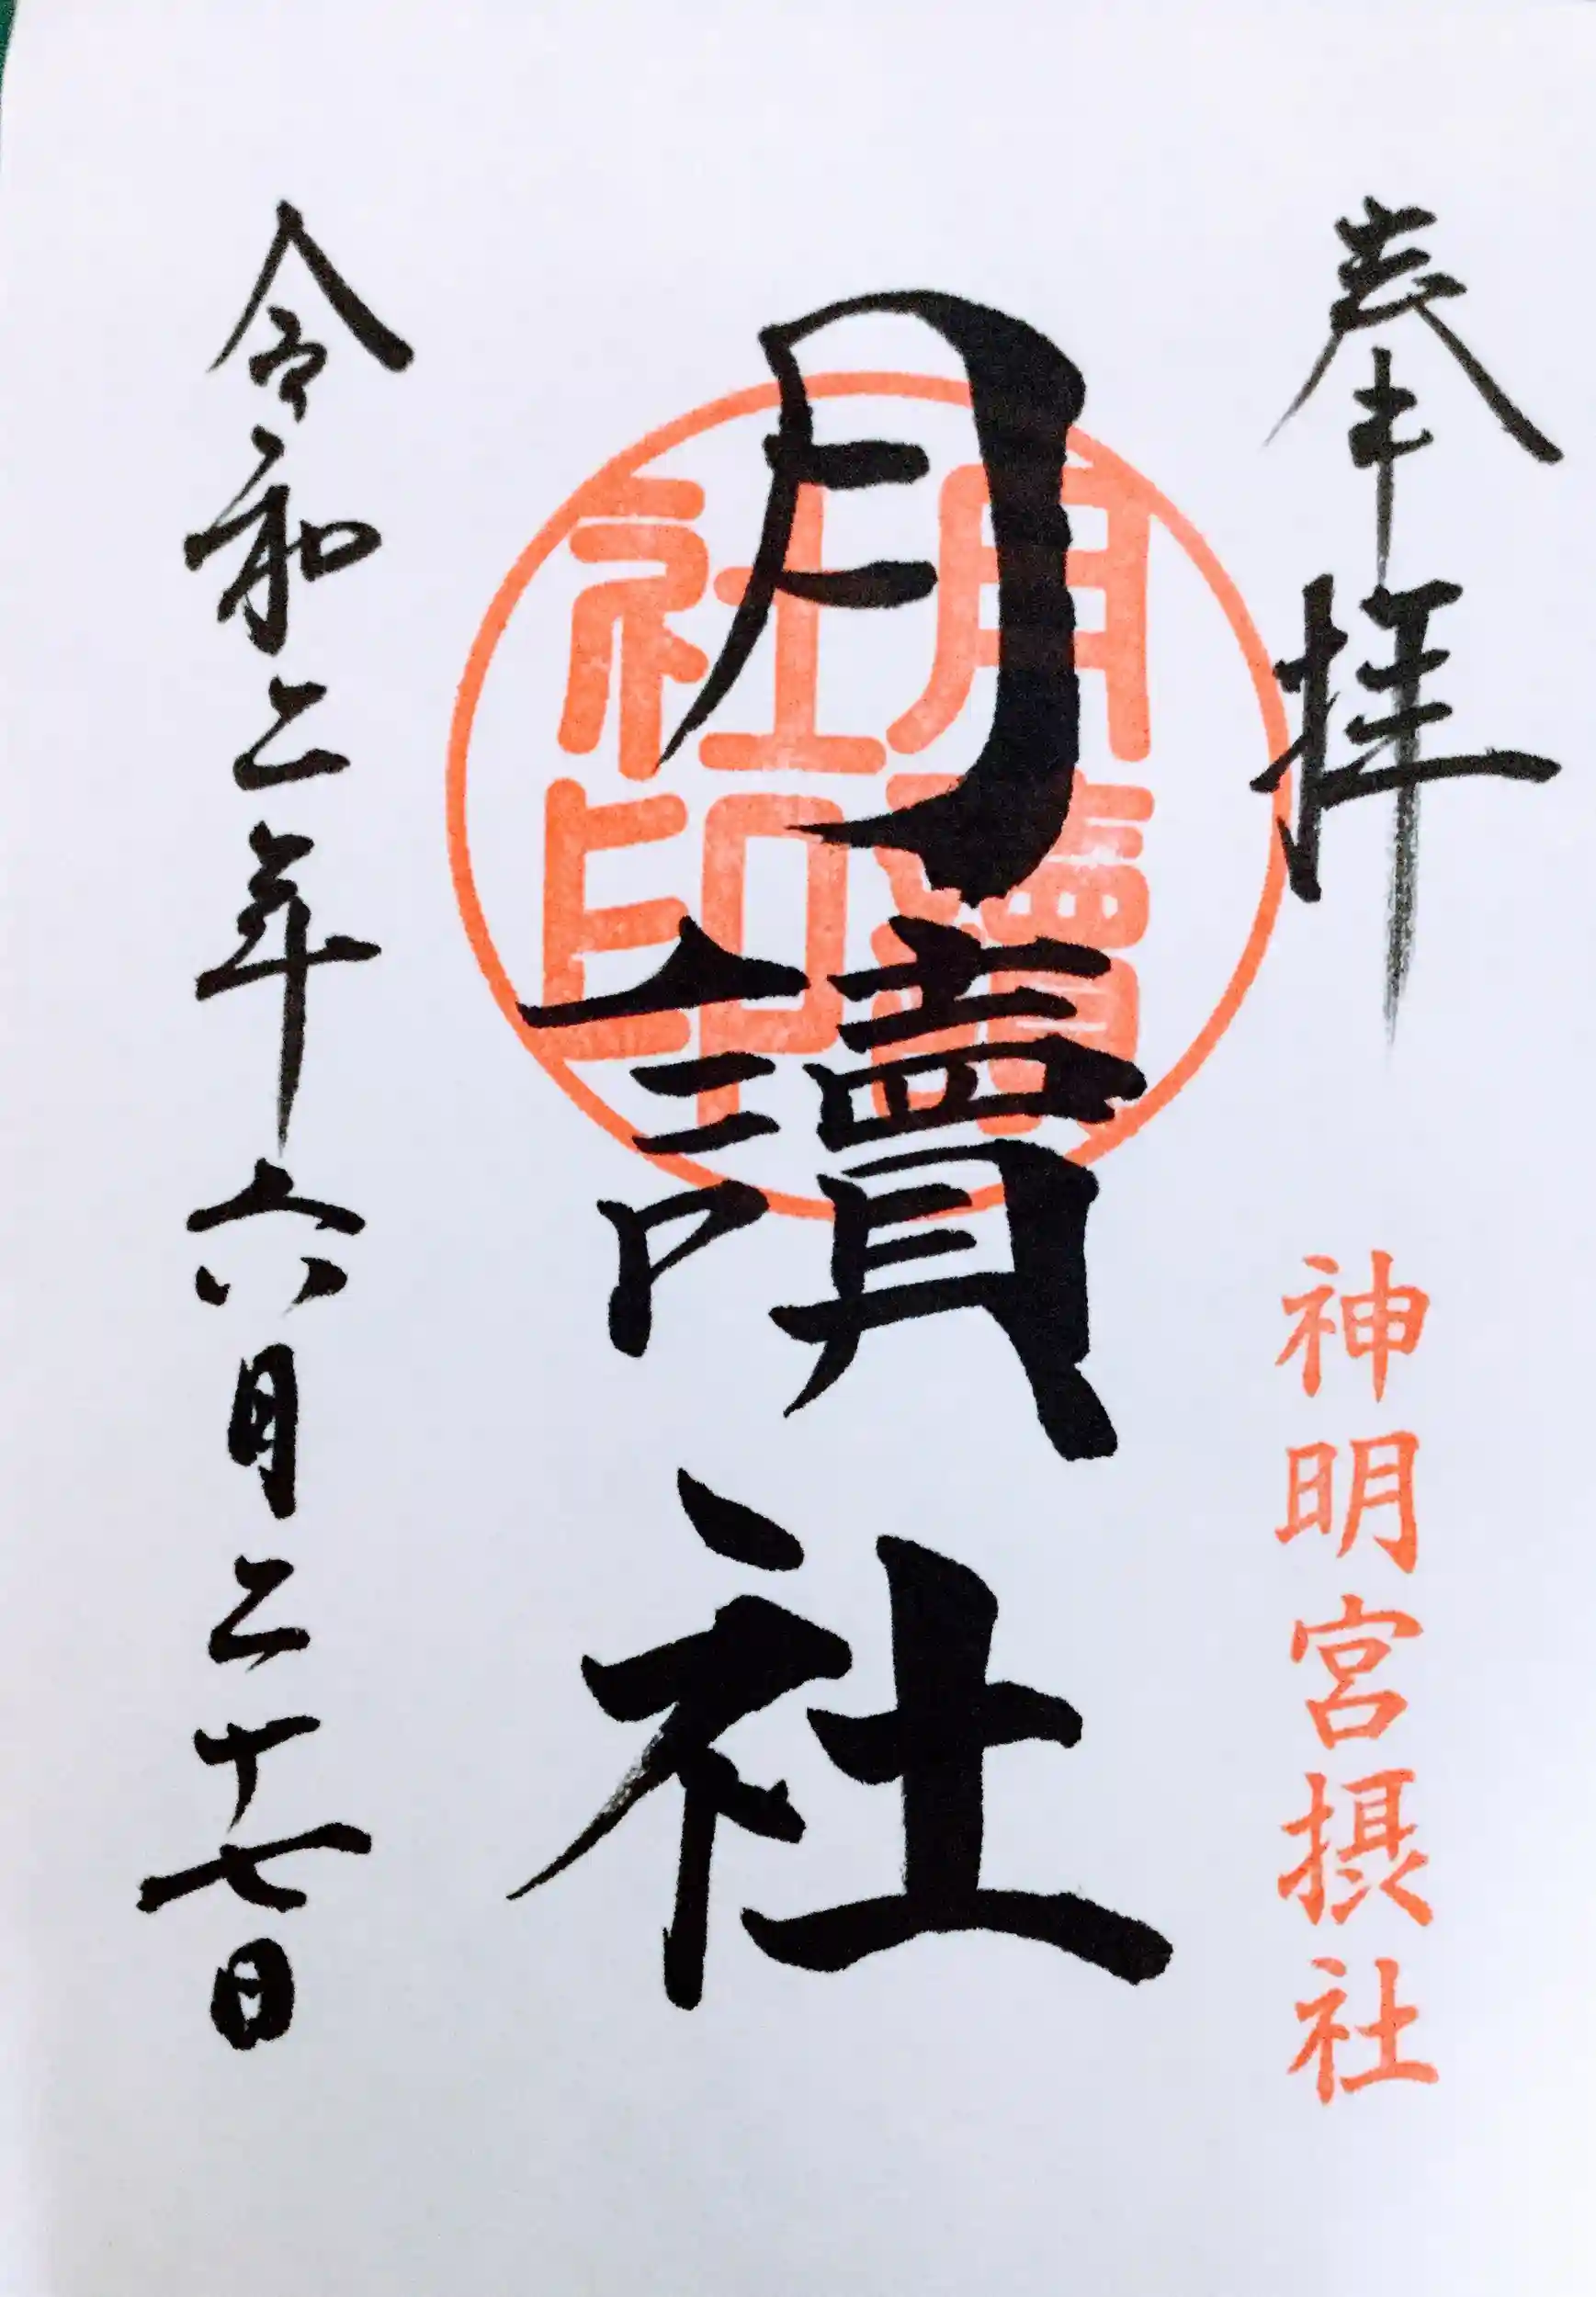 奉拝
神明宮摂社
月讀社
月讀社印
令和二年六月二十七日